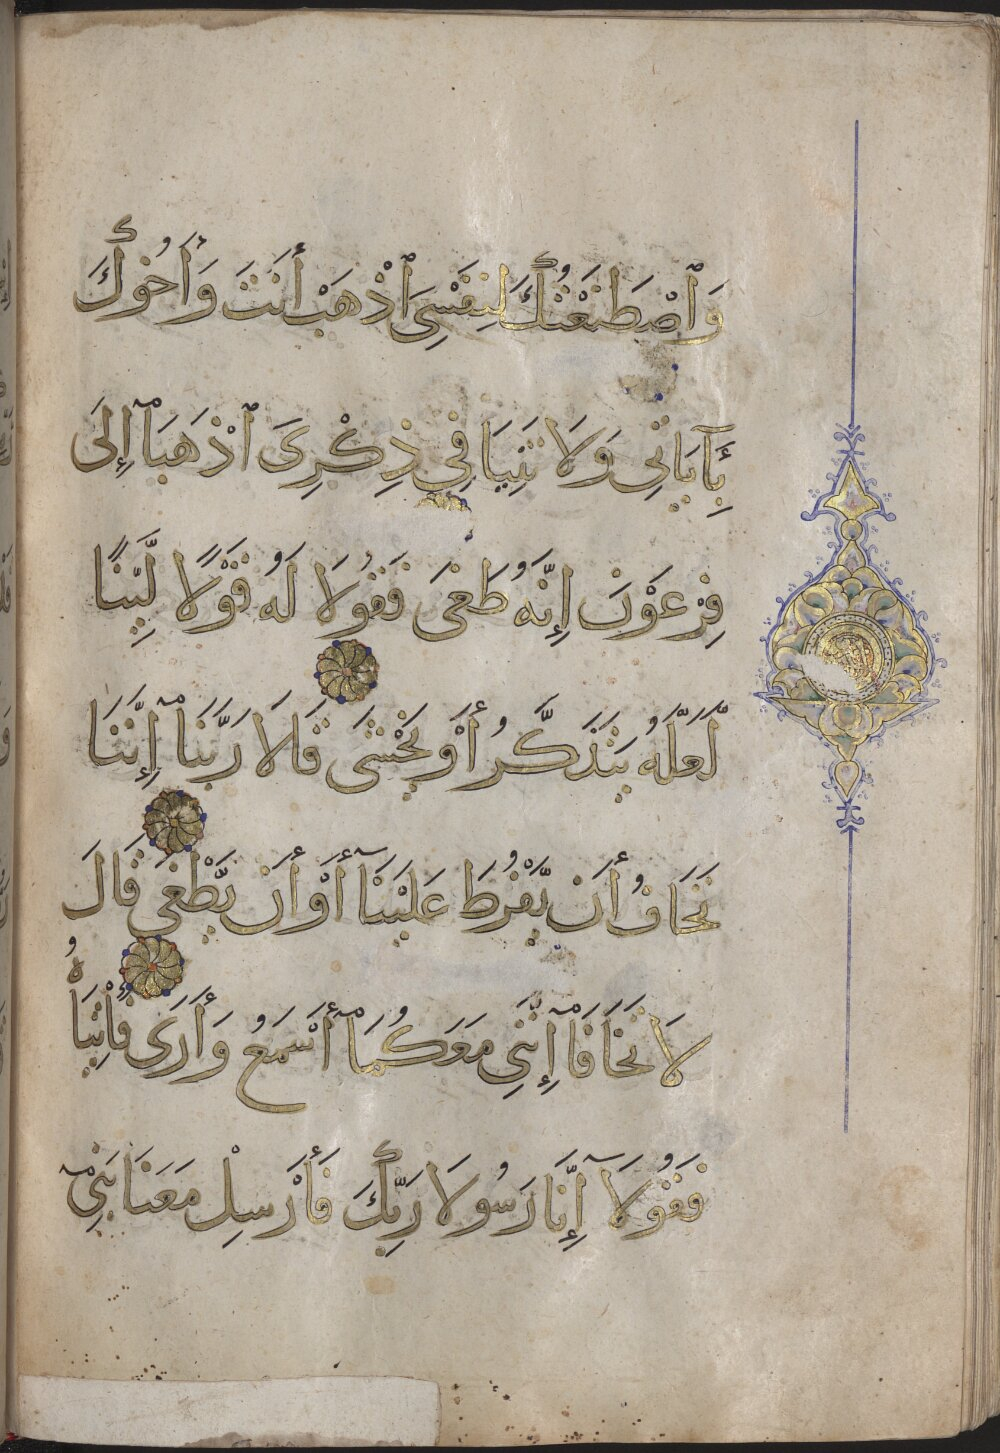 وَٱصْطَنَعْتُكَ لِنَفْسِى ٱذْهَبْ أَنتَ وَأَخُوكَ
بِـَٔايَاتِى وَلَا تَنِيَا فِي ذِكْرِى ٱذْهَبَا إِلَى
فِرْعَوْنَ إِنَّهُ طَغَى فَقُولَا لَهُ قَوْلًا لَّيِّنًا
لَّعَلَّهُ يَتَذَكَّرُ أَوْ يَخْشَى قَالَا رَبَّنَا إِنَّنَا
نَخَافُ أَن يَّفْرُطَ عَلَيْنَآ أَوْ أَن يَّطْغَى قَالَ
لَا تَخَافَا إِنَّنِي مَعَكُمَا أَسْمَعُ وَأَرَى فَأْتِيَاهُ
فَقُولَآ إِنَّا رَسُولَا رَبِّكَ فَأَرْسِلْ مَعَنَا بَنِي